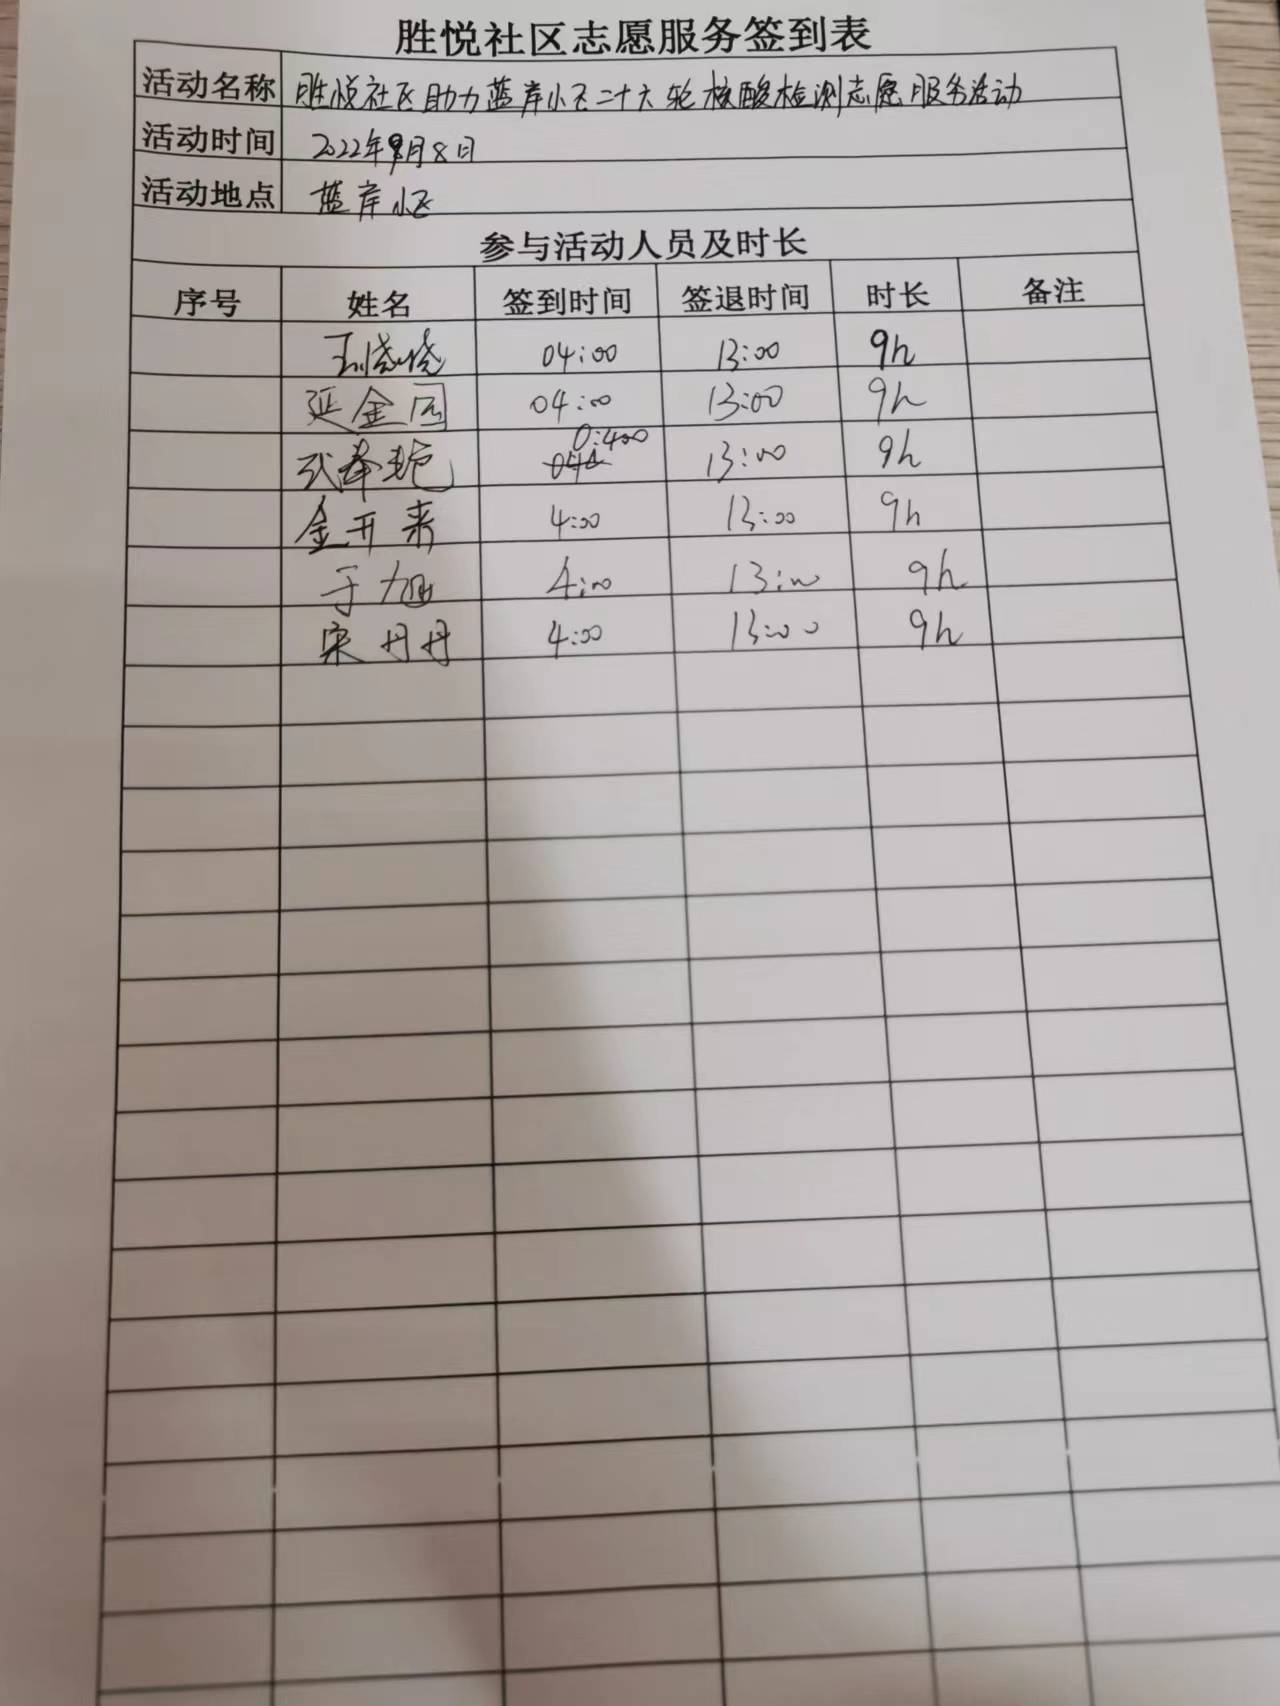 胜悦社区志愿服务签到表
活动名称 胜悦社区助力蓝岸小区二十六轮核酸检测志愿服务活动
活动时间 2022年9月8日
活动地点 蓝岸小区
参与活动人员及时长
序号 姓名 签到时间 签退时间 时长 备注
王晓晓 04:00 13:00 9h
延金国 04:00 13:00 9h
0:400
13:00 9h
金开来 4:00 13:00 9h
于旭 4:00 13:00 9h
宋丹丹 4:00 13:00 9h